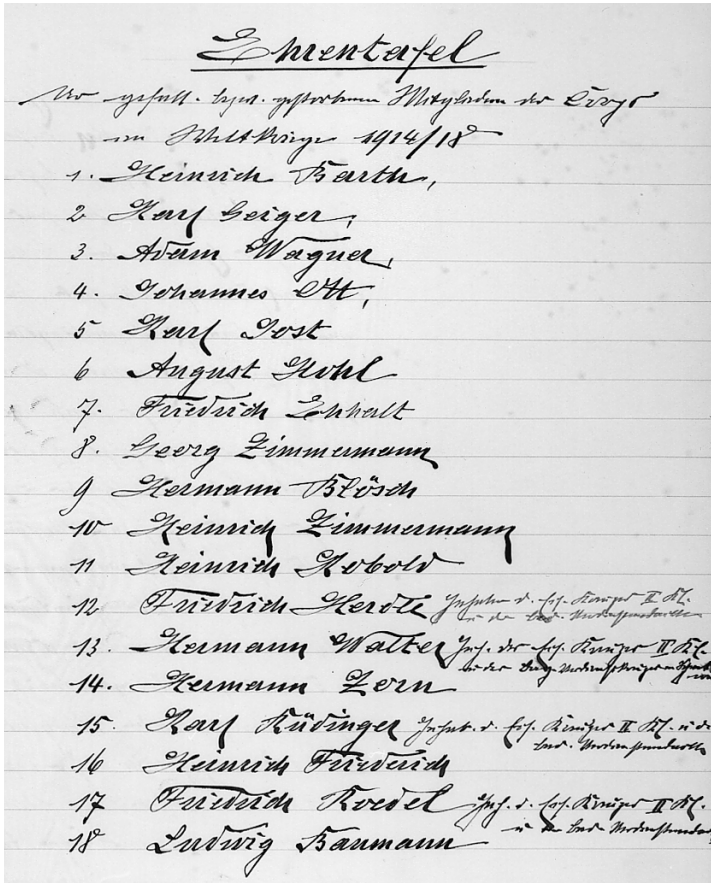 Ehrentafel
der gefall. bezw. gestorbenen Mitglieder der Corps
im Weltkriege 1914/18
1. Heinrich Barth,
2 Karl Geiger,
3. Adam Wagner,
4. Johannes Ott,
5 Karl Jost
6 August Hohl
7. Friedrich Ehhalt
8. Georg Zimmermann
9 Hermann Blösch
10 Heinrich Zimmermann
11 Heinrich Kobold
12 Friedrich Herdle Inhaber d. Eis. Kreuzes II Kl.
u. der bad. Verdienstmedaille
13. Hermann Walter Inh. des Eis. Kreuzes II Kl.
u. der
14. Hermann Zorn
15. Karl Rüdinger Inhab. d. Eis. Kreuzes II Kl. u. d.
bad. Verdienstmedaille
16 Heinrich Friederich
17 Friedrich Roedel Inh. d. Eis. Kreuzes II Kl.
u. der bad. Verdienstmedai
18 Ludwig Baumann